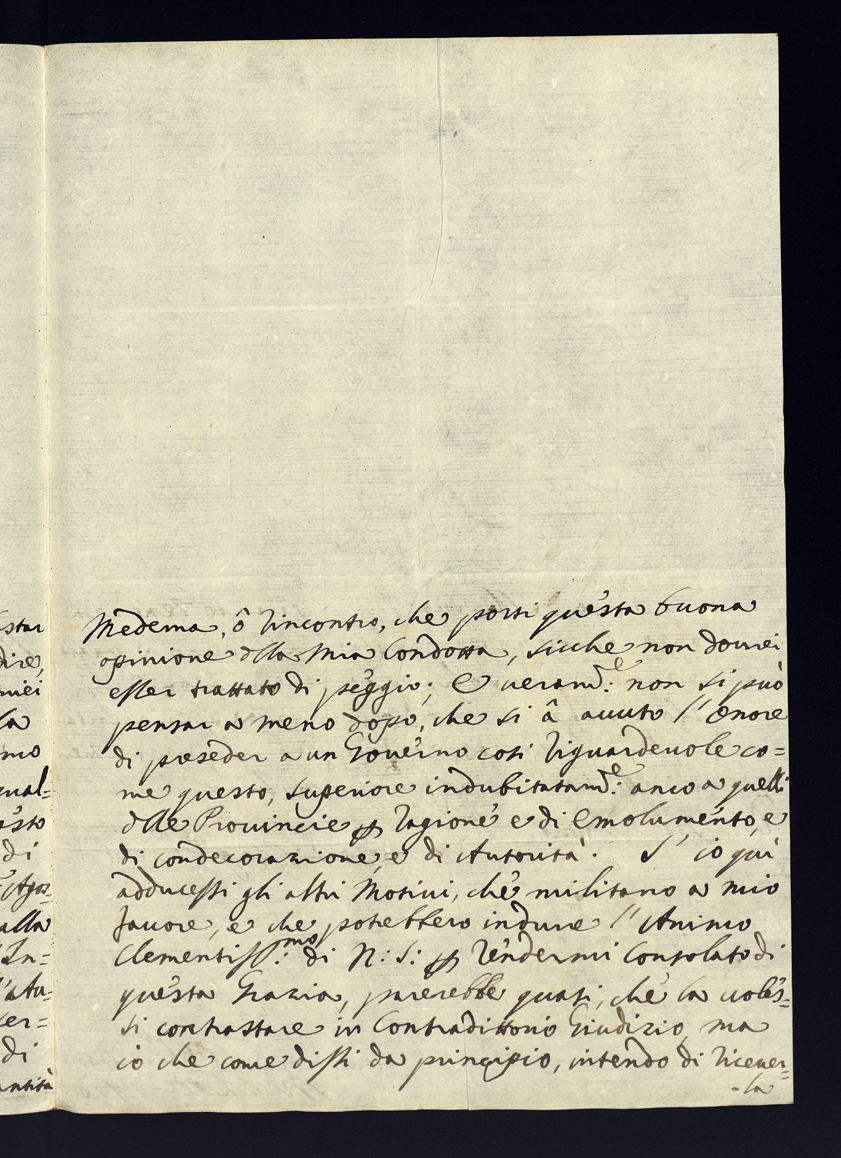 Medema, ò rincontro, che porti questa buona
opinione dlla Mia Condotta, sicche non dourei
esser trattato di peggio; E veramte: non si può
pensar a meno dopo, che si â auuto l'onore
di preseder a un Gouerno così riguardeuole co=
me questo, superiore indubitatamte: anco a quelli
dlle Prouincie p ragione e di emolumento, e
di condecorazione, e di Autorità. S' io quì
adducessi gli altri Motiui, che militano a mio
fauore, e che potrebbero indure l'Animo
Clementissmo: di N: S: p rendermi consolato di
questa Grazia, parerebbe quasi, che la voles=
si contrastare in Contradittorio Giudizio, ma
io che come dissi da principio, intendo di riceuer=
=la